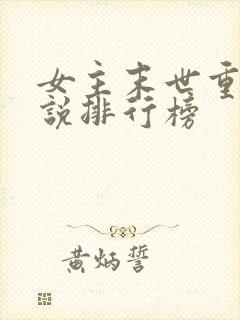 女主末世重
說排行榜
黃炳誓